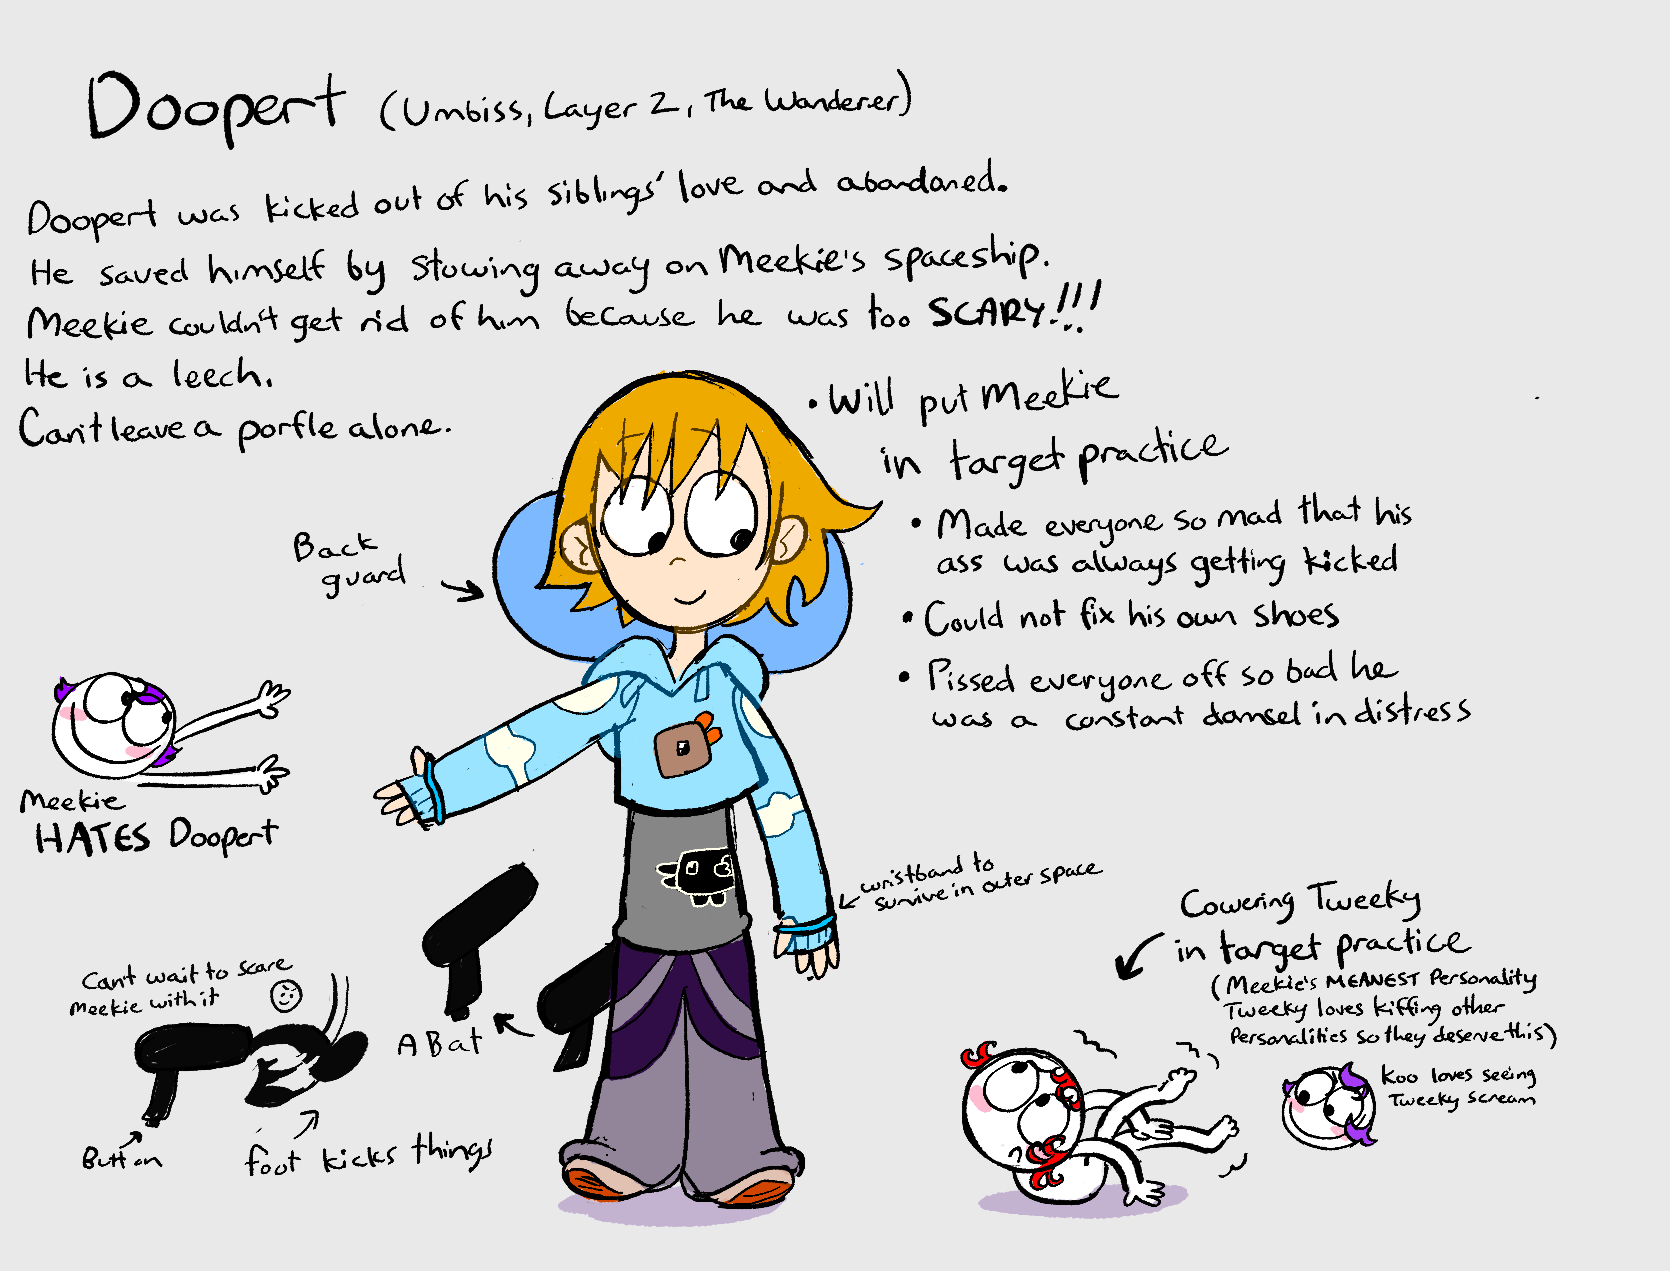 Doopert (Umbiss, Layer 2, The Wanderer)
Doopert was kicked out of his siblings' love and abandoned.
He saved himself by stowing away on Meekie's spaceship.
Meekie couldn't get rid of him because he was too SCARY!!!
He is a leech.
Can't leave a porfle alone.
• Will put Meekie
in target practice
• Made everyone so mad that his
ass was always getting kicked
• Could not fix his own shoes
• Pissed everyone off so bad he
was a constant damsel in distress
Back
guard
Meekie
HATES Doopert
wristband to
survive in outer space
Can't wait to scare
Meekie with it
A Bat
Button
foot kicks things
Cowering Tweeky
in target practice
(Meekie's MEANEST Personality
Tweeky loves kiffing other
Personalities so they deserve this)
Koo loves seeing
Tweeky scream